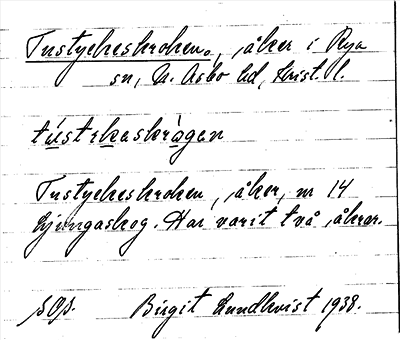 Tustyckeskroken, åker i Rya
sn, N. Åsbo hd, Krist. l.
tústrkaskrågan
Tustyckeskroken, åker, nr 14
Ljungaskog. Har varit två åkrar.
sos. Birgit Lundkvist 1938.